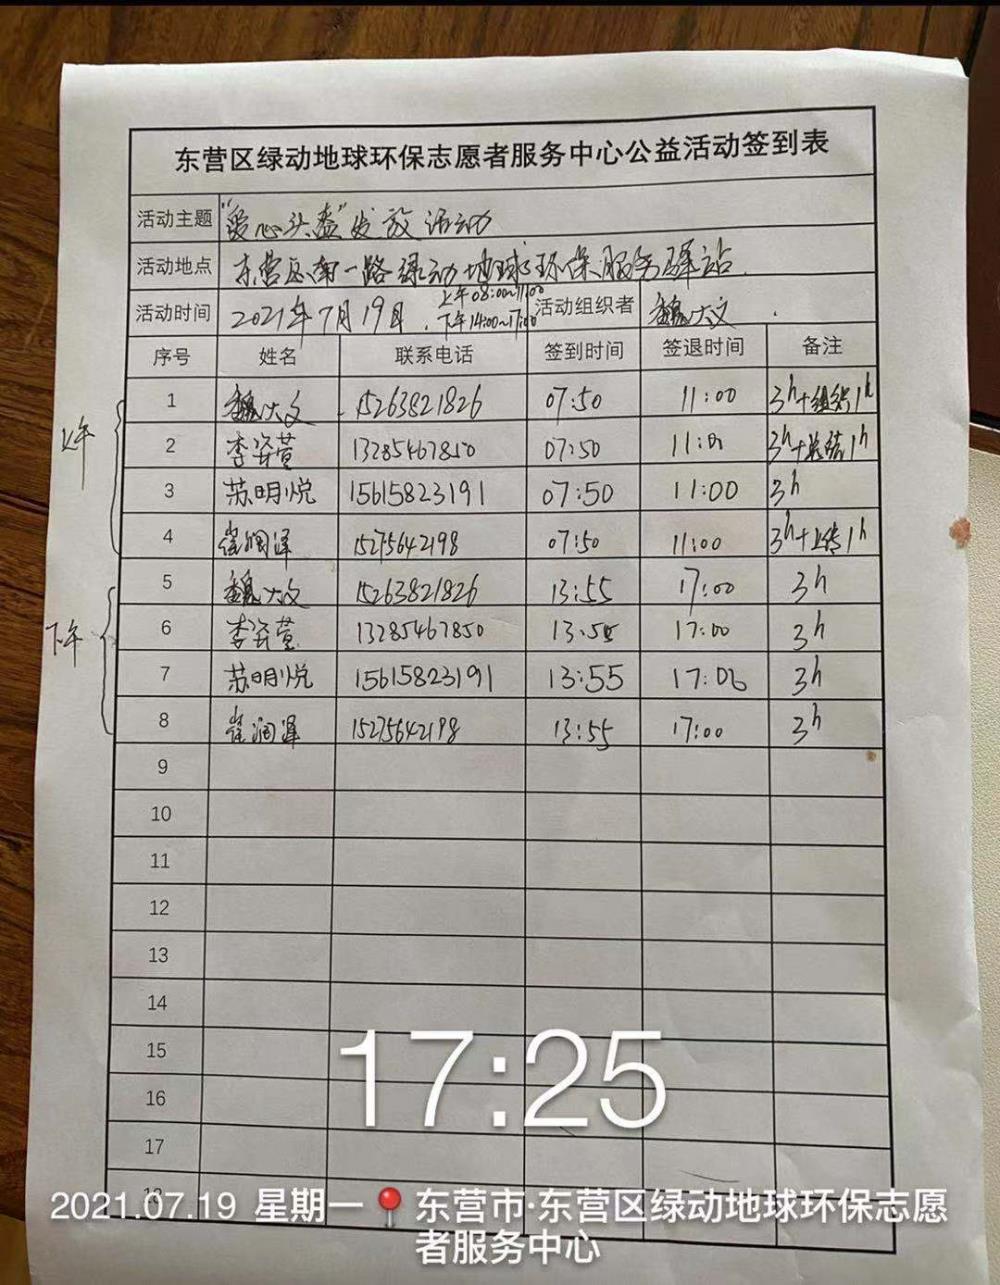 东营区绿动地球环保志愿者服务中心公益活动签到表
活动主题 "爱心头盔"发放活动
活动地点 东营区南一路绿动地球环保服务驿站.
活动时间 2021年7月19日. 上午08:00~11:00 下午14:00~17:00 活动组织者 魏大文.
序号 姓名 联系电话 签到时间 签退时间 备注
上午
1 魏大文 15263821826 07:50 11:00 3h+组织1h
2 李译萱 13285467850 07:50 11:00 3h+总结1h
3 苏明悦 15615823191 07:50 11:00 3h
4 崔润泽 15275642198 07:50 11:00 3h+上传1h
下午
5 魏大文 15263821826 13:55 17:00 3h
6 李译萱 13285467850 13:55 17:00 3h
7 苏明悦 15615823191 13:55 17:00 3h
8 崔润泽 15275642198 13:55 17:00 3h
9
10
11
12
13
14
15
16
17
18
17:25
2021.07.19 星期一 东营市·东营区绿动地球环保志愿
者服务中心